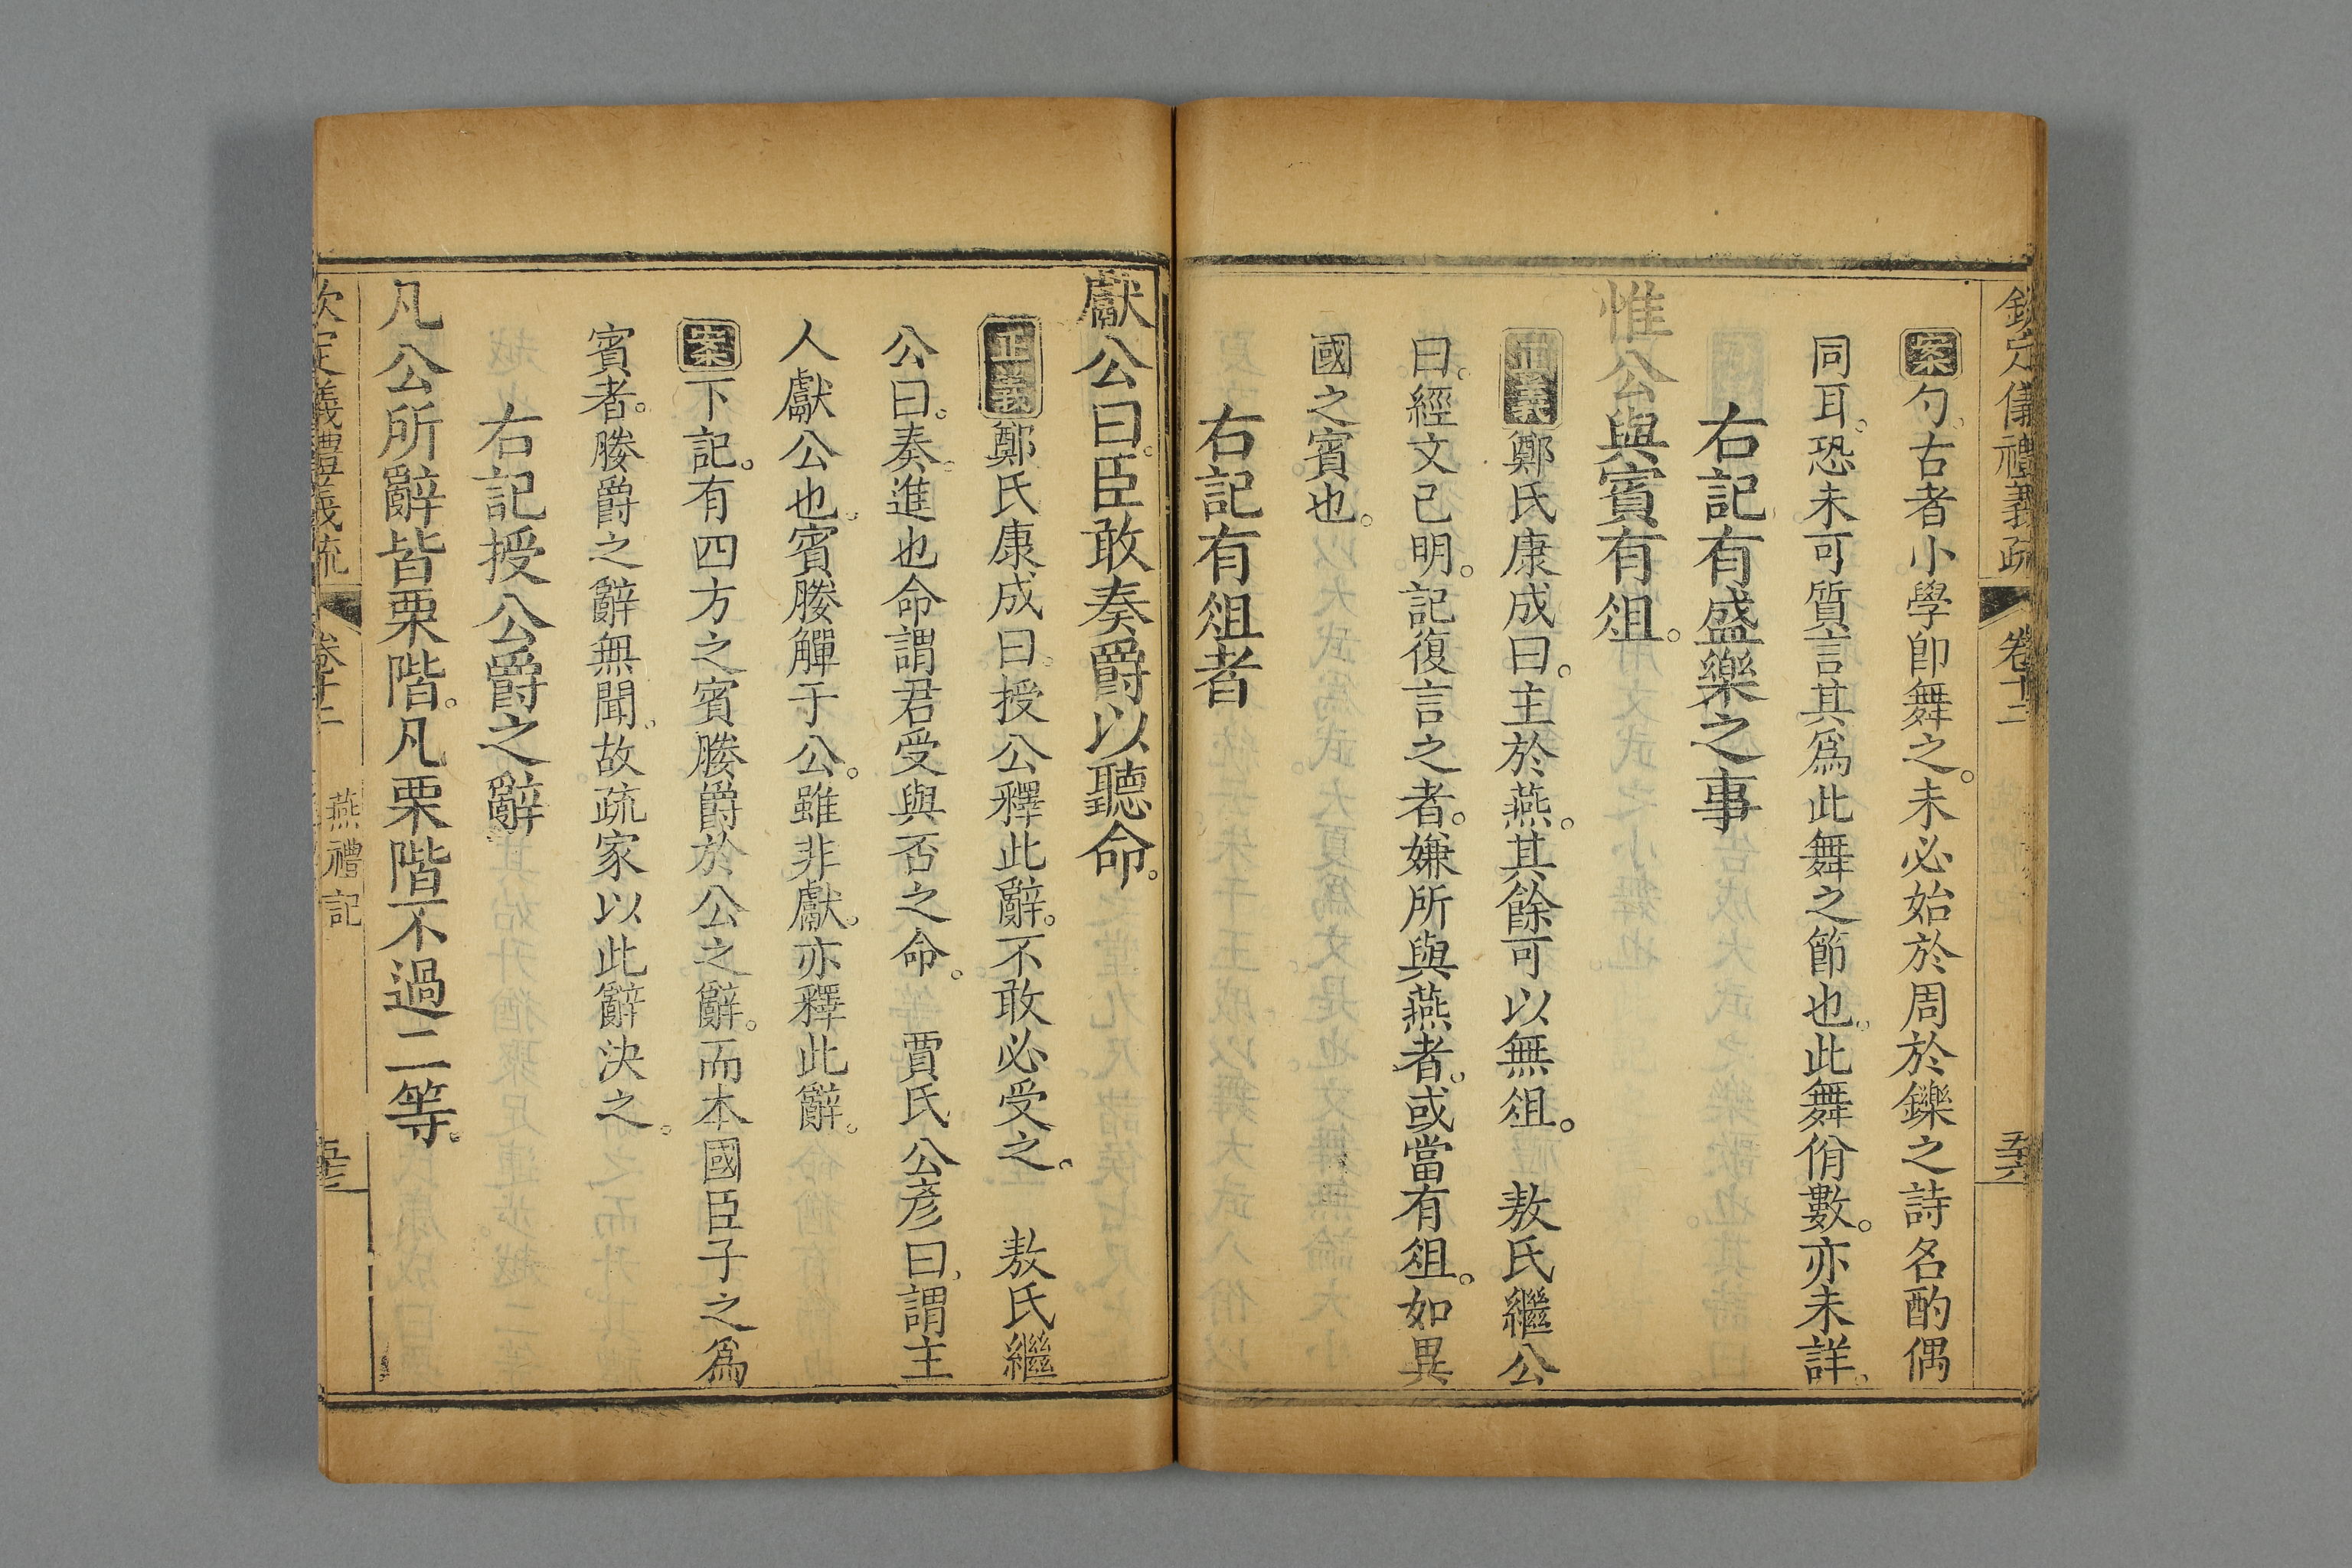 欽定儀禮義疏 卷十二 五六
案勺。古者小學卽舞之。未必始於周於鑠之詩名酌偶
同耳。恐未可質言其爲此舞之節也。此舞佾數。亦未詳。
右記有盛樂之事
惟公與賓有俎。
正義鄭氏康成曰。主於燕。其餘可以無俎。 敖氏繼公
曰。經文已明。記復言之者。嫌所與燕者。或當有俎。如異
國之賓也。
右記有俎者
獻公曰。臣敢奏爵以聽命。
正義鄭氏康成曰。授公釋此辭。不敢必受之。 敖氏繼
公曰。奏。進也命謂君受與否之命。 賈氏公彥曰。謂主
人獻公也。賓媵觶于公。雖非獻。亦釋此辭。
案下記。有四方之賓媵爵於公之辭。而本國臣子之爲
賓者。媵爵之辭無聞。故疏家以此辭決之。
右記授公爵之辭
凡公所辭皆栗階。凡栗階不過二等。
欽定儀禮義疏 卷十二 燕禮記